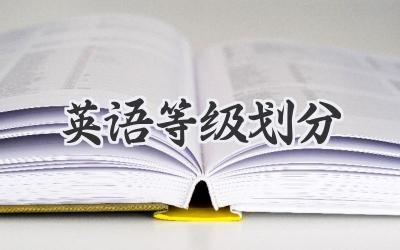 英语等级划分